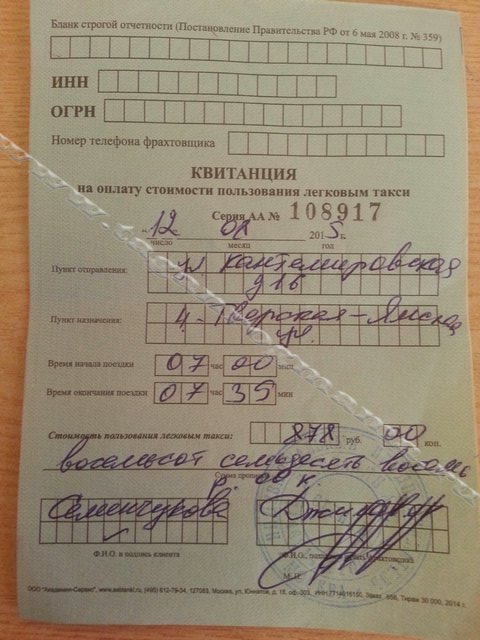 Бланк строгой отчетности (Постановление Правительства РФ от 6 мая 2008 г. № 359)
ИНН
ОГРН
Номер телефона фрахтовщика
КВИТАНЦИЯ
на оплату стоимости пользования легковым такси
Серия АА № 108917
12 08 2015 г.
число месяц год
Пункт отправления: ул Кантемировская
д 16
Пункт назначения: 4-Тверская-Ямская
ул.
Время начала поездки 07 час 00 мин
Время окончания поездки 07 час 35 мин
Стоимость пользования легковым такси: 878 руб. 00 коп.
восемьсот семьдесят восемь
Сумма
р. 00 к.
Семенчукова
Ф.И.О. и подпись клиента
Ф.И.О., фрахтовщика
М.П.
ООО "Академия-Сервис", (495) 612-79-34, 127083, Москва, ул. Юннатов, д. 18, Тираж 30 000, 2014 г.